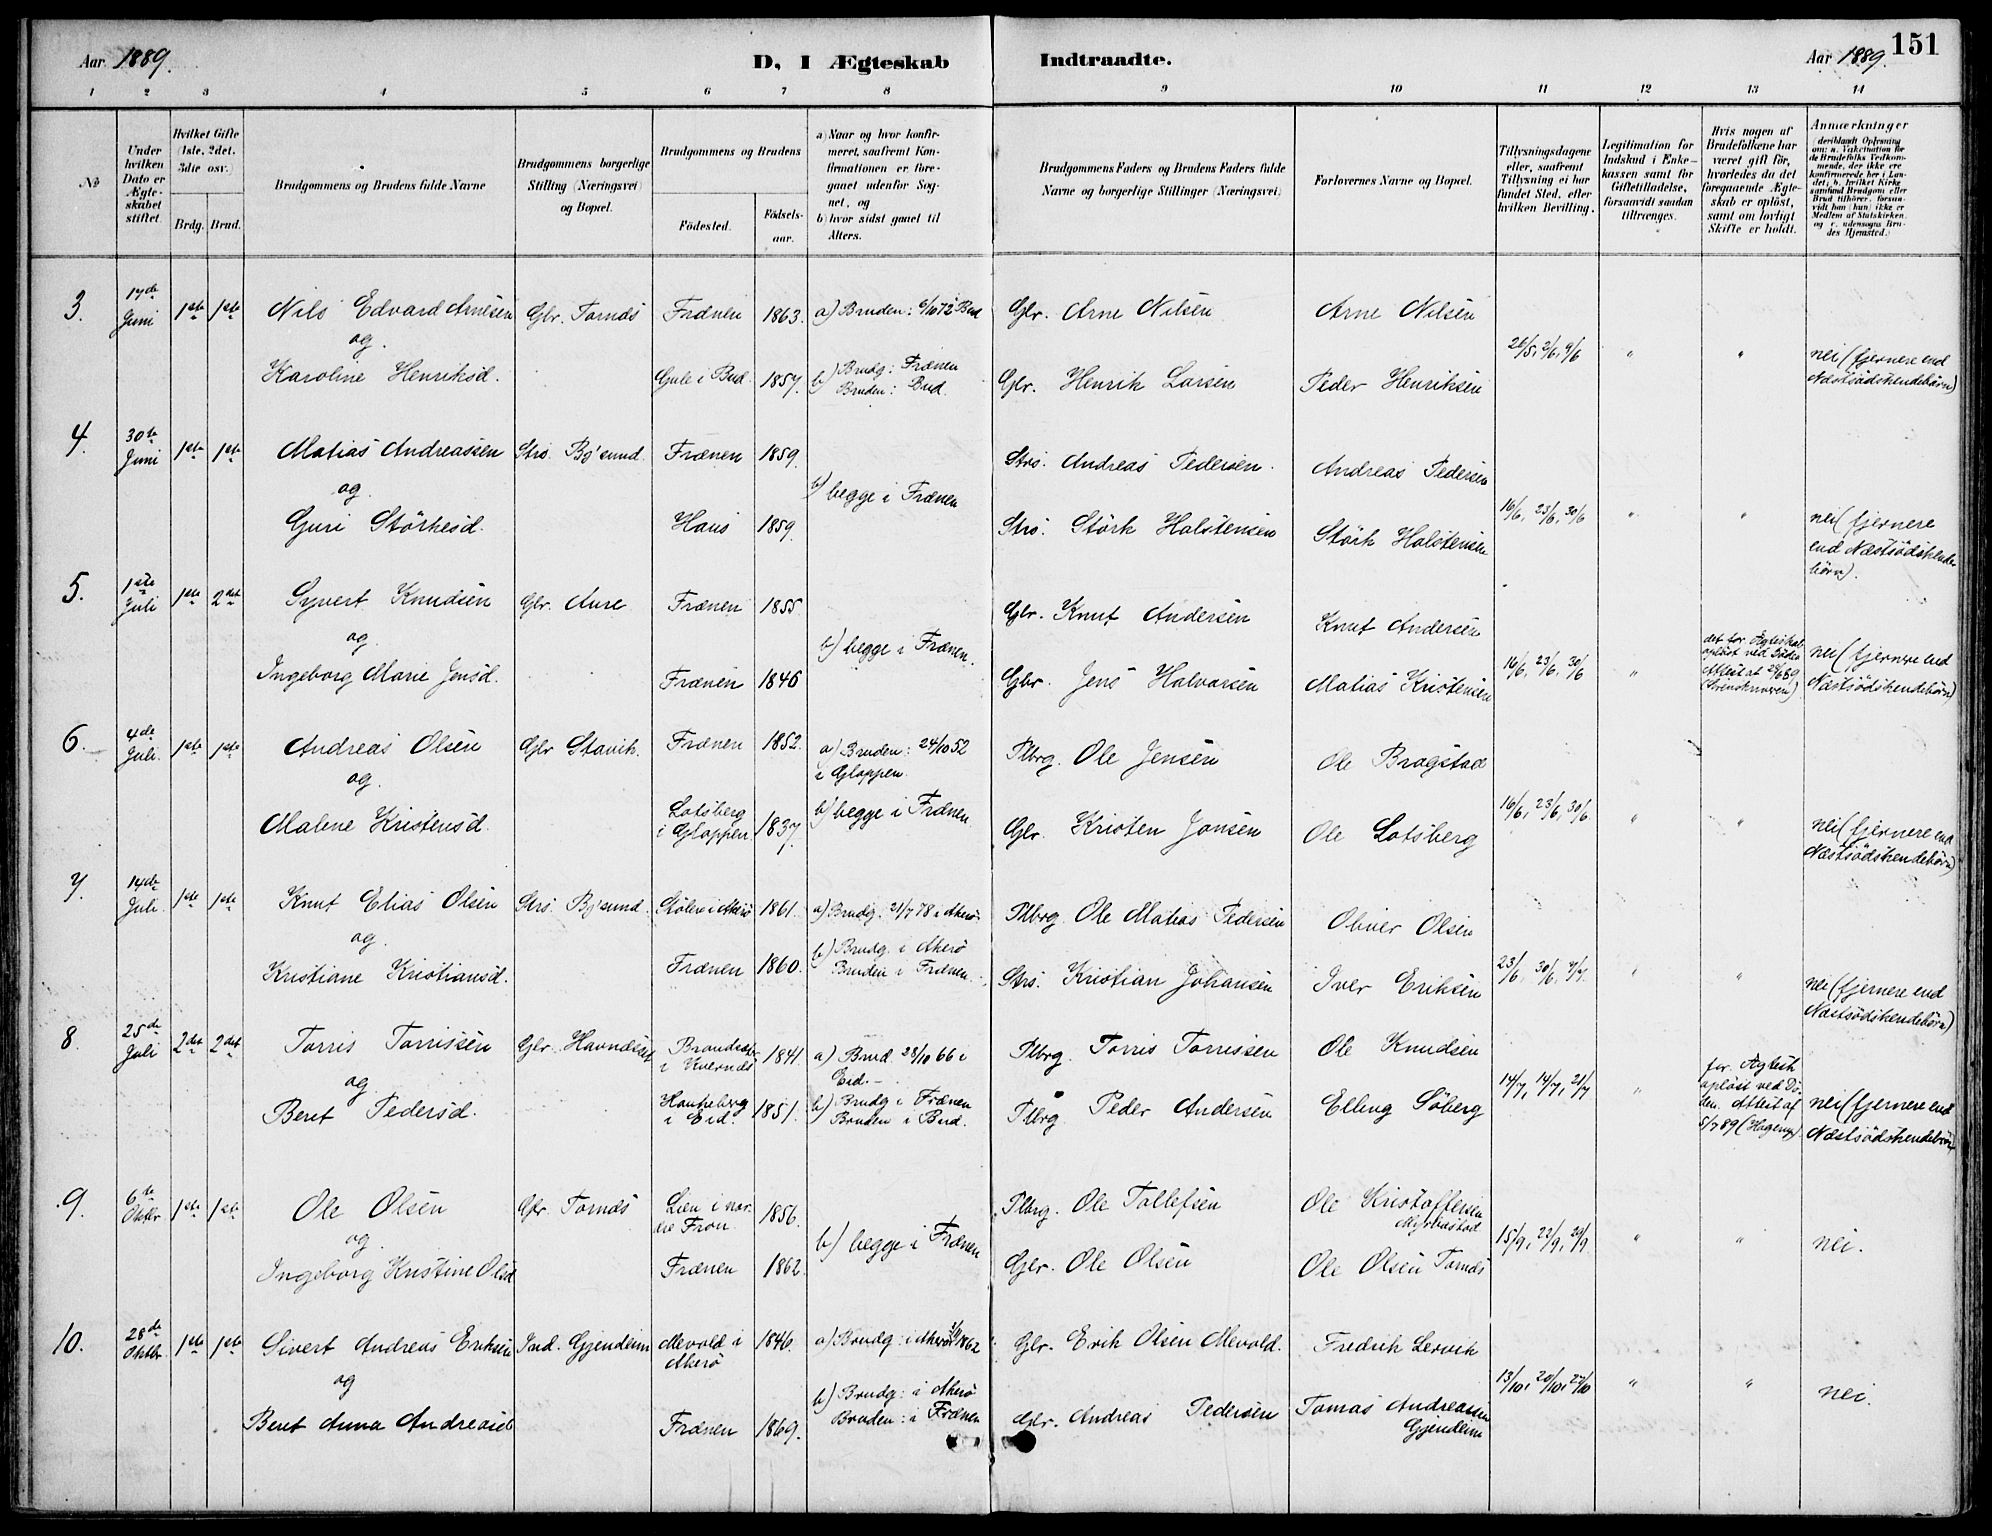 Aar 1889.
D. I Ægteskab Indtraadte.
Aar 1889. 151
1 2 3 4 5 6 7 8 9 10 11 12 13 14
No
Under hvilken Dato er Ægteskabet stiftet.
Hvilket Gifte (1ste, 2det, 3die osv.)
Brdg. Brud.
Brudgommens og Brudens fulde Navne
Brudgommens borgerlige Stilling (Næringsvei) og Bopæl.
Brudgommens og Brudens
Fødested. Fødselsaar.
a) Naar og hvor konfirmeret, saafremt Konfirmationen er foregaaet udenfor Sognet, og
b) hvor sidst gaaet til Alters.
Brudgommens Faders og Brudens Faders fulde Navne og borgerlige Stillinger (Næringsvei)
Forlovernes Navne og Bopæl.
Tillysningsdagene eller, saafremt Tillysning ei har fundet Sted, efter hvilken Bevilling.
Legitimation for Indskud i Enkekassen samt for Giftetilladelse, forsaavidt saadan tiltrænges.
Hvis nogen af Brudefolkene har været gift før, hvorledes da det foregaaende Ægteskab er opløst, samt om lovligt Skifte er holdt.
Anmærkninger
3. 17de Juni 1ste 1ste Nils Edvard Arnesen Gbr. Tornæs Frænen 1863. a) Bruden: 6/10 72 Bud Gbr. Arne Nilsen Arne Nilsen
og
26/5, 2/6, 9/6 " "
Karoline Henriksd. Gule i Bud 1857. b) Brudg: Frænen Bruden: Bud. Gbr. Henrik Larsen Peder Henriksen nei (fjernere end Næstsødskendebørn)
4. 30te Juni 1ste 1ste Matias Andreassen Strs. Bø'sund. Frænen 1859. Strs. Andreas Pedersen. Andreas Pedersen
og
b) begge i Frænen
Guri Størkesd. Haus 1859. Strs. Størk Halstensen Størk Halstensen 16/6, 23/6, 30/6 " " nei (fjernere end Næstsødskendebørn).
5. 1ste Juli 1ste 2det Syvert Knudsen Gbr. Aure Frænen 1855 Gbr. Knut Andersen Knut Andersen
og
b) begge i Frænen.
Ingeborg Marie Jensd. Frænen 1846 Gbr. Jens Halvarsen Matias Kristensen 16/6, 23/6, 30/6 " nei (fjernere end Næstsødskendebørn)
6. 4de Juli. 1ste 1ste Andreas Olsen Gbr Stavik. Frænen 1852. a) Bruden: 24/10 52 i Gloppen. Plbrg. Ole Jensen Ole Bragstad
og
Malene Kristensd. Lotsberg i Gloppen 1837. b) begge i Frænen Gbr. Kristen Jonsen Ole Lotsberg 16/6, 23/6, 30/6. " " nei (fjernere end Næstsødskendebørn)
7. 14de Juli. 1ste 1ste Knut Elias Olsen Strs. Bø'sund. Stølen i Akerø 1861. a) Brudg. 21/7 78 i Akerø. Plbrg. Ole Matias Pedersen Oliver Olsen
og
Kristiane Kristiansd. Frænen 1860. b) Brudg. i Akerø Bruden i Frænen. Strs. Kristian Johansen Iver Eriksen 23/6, 30/6, 7/7. " " nei (fjernere end Næstsødskendebørn)
8. 25de Juli 2det 2det Torris Torrissen Gbr. i Kvernes 1841. a) Brud. 28/10 66 i Eid.- Plbrg. Torris Torrissen Ole Knudsen
og
Beret Pedersd. i Eid. 1851. b) Brudg i Frænen Bruden i Bud. Plbrg Peder Andersen Elling Søberg 14/7, 14/7, 21/7 " for. Ægtesk. opløst ved Døden. Attest af 5/7 89 nei (fjernere end Næstsødskendebørn
9. 6te Oktbr 1ste 1ste Ole Olsen Gbr. Tornæs Lien i nordre Fron. 1856. Plbrg. Ole Tollefsen Ole Kristoffersen
og
b) begge i Frænen
Ingeborg Kristine Olsd Frænen 1862. Gbr. Ole Olsen Ole Olsen Tornæs 15/9, 22/9, 29/9 " " nei.
10. 28de Oktbr. 1ste 1ste Sivert Andreas Eriksen Ind. Gjendeim Mevold i Akerø 1846. a) Brudg: i Akerø 1862 Gbr. Erik Olsen Mevold. Fredrik Lervik
og
Beret Anna Andreasd Frænen 1869. b) Brudg: i Akerø Bruden: i Frænen Gbr. Andreas Pedersen Tomas Andreassen Gjendeim 13/10, 20/10, 27/10 " " nei.